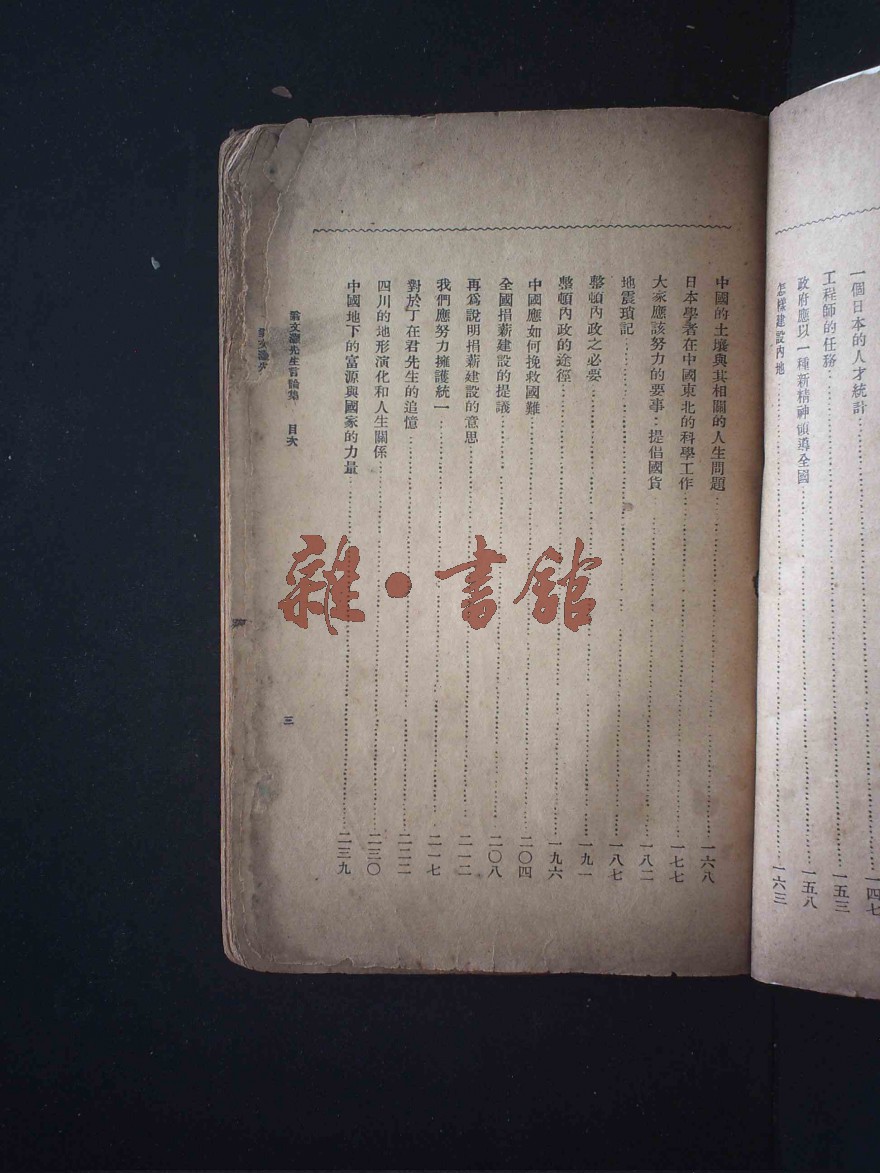 一個日本的人才統計……一四七
工程師的任務……一五三
政府應以一種新精神領導全國……一五八
怎樣建設內地……一六三
中國的土壤與其相關的人生問題……一六八
日本學者在中國東北的科學工作……一七七
大家應該努力的要事：提倡國貨……一八二
地震瑣記……一八七
整頓內政之必要……一九一
整頓內政的途徑……一九六
中國應如何挽救國難……二〇四
全國捐薪建設的提議……二〇八
再爲說明捐薪建設的意思……二一二
我們應努力擁護統一……二一七
對於丁在君先生的追憶……二二二
四川的地形演化和人生關係……二三〇
中國地下的富源與國家的力量……二三九
翁文灝先生言論集 目次
三
翁文灝先
雜·書館